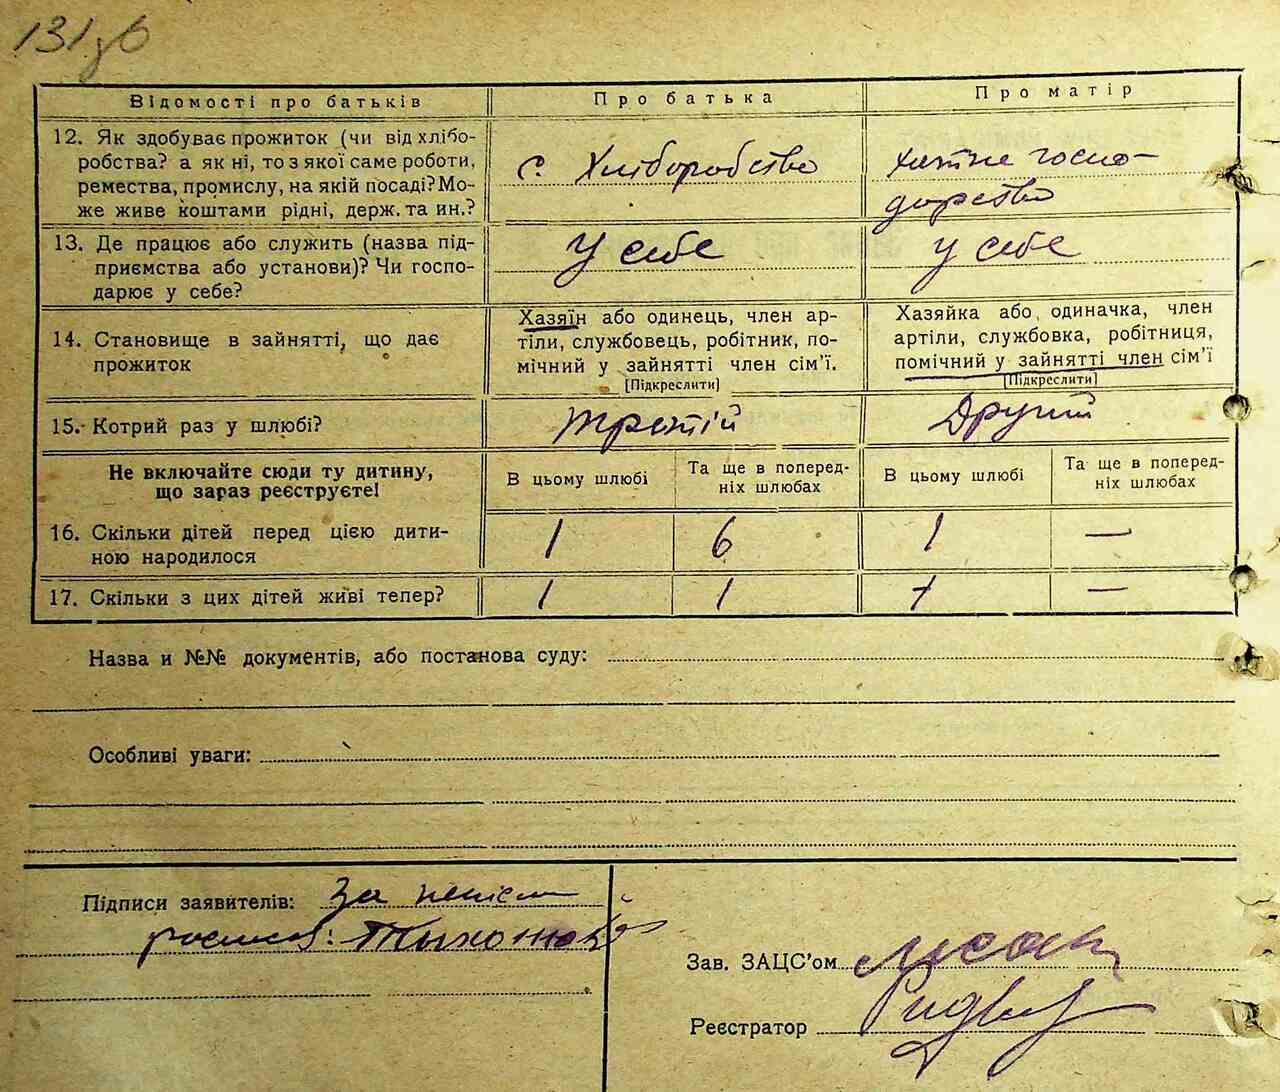 131зв
Відомості про батьків
Про батька
Про матір
12. Як здобуває прожиток (чи від хлібо-
робства? а як ні, то з якої саме роботи,
ремества, промислу, на якій посаді? Мо-
же живе коштами рідні, держ. та ин.?
С. Хліборобство
хатне госпо-
дарство
13. Де працює або служить (назва під-
приємства або установи)? Чи госпо-
дарює у себе?
У себе
У себе
14. Становище в зайнятті, що дає
прожиток
Хазяїн або одинець, член ар-
тіли, службовець, робітник, по-
мічний у зайнятті член сім'ї.
[Підкреслити]
Хазяйка або одиначка, член
артіли, службовка, робітниця,
помічний у зайнятті член сім'ї
[Підкреслити]
15. Котрий раз у шлюбі?
Третій
Другий
Не включайте сюди ту дитину,
що зараз реєструєте!
В цьому шлюбі
Та ще в поперед-
ніх шлюбах
В цьому шлюбі
Та ще в поперед-
ніх шлюбах
16. Скільки дітей перед цією дити-
ною народилося
1 6 1 —
17. Скільки з цих дітей живі тепер?
1 1 1 —
Назва и №№ документів, або постанова суду:
Особливі уваги:
Підписи заявителів: За непісм
Зав. ЗАЦС'ом
Реєстратор